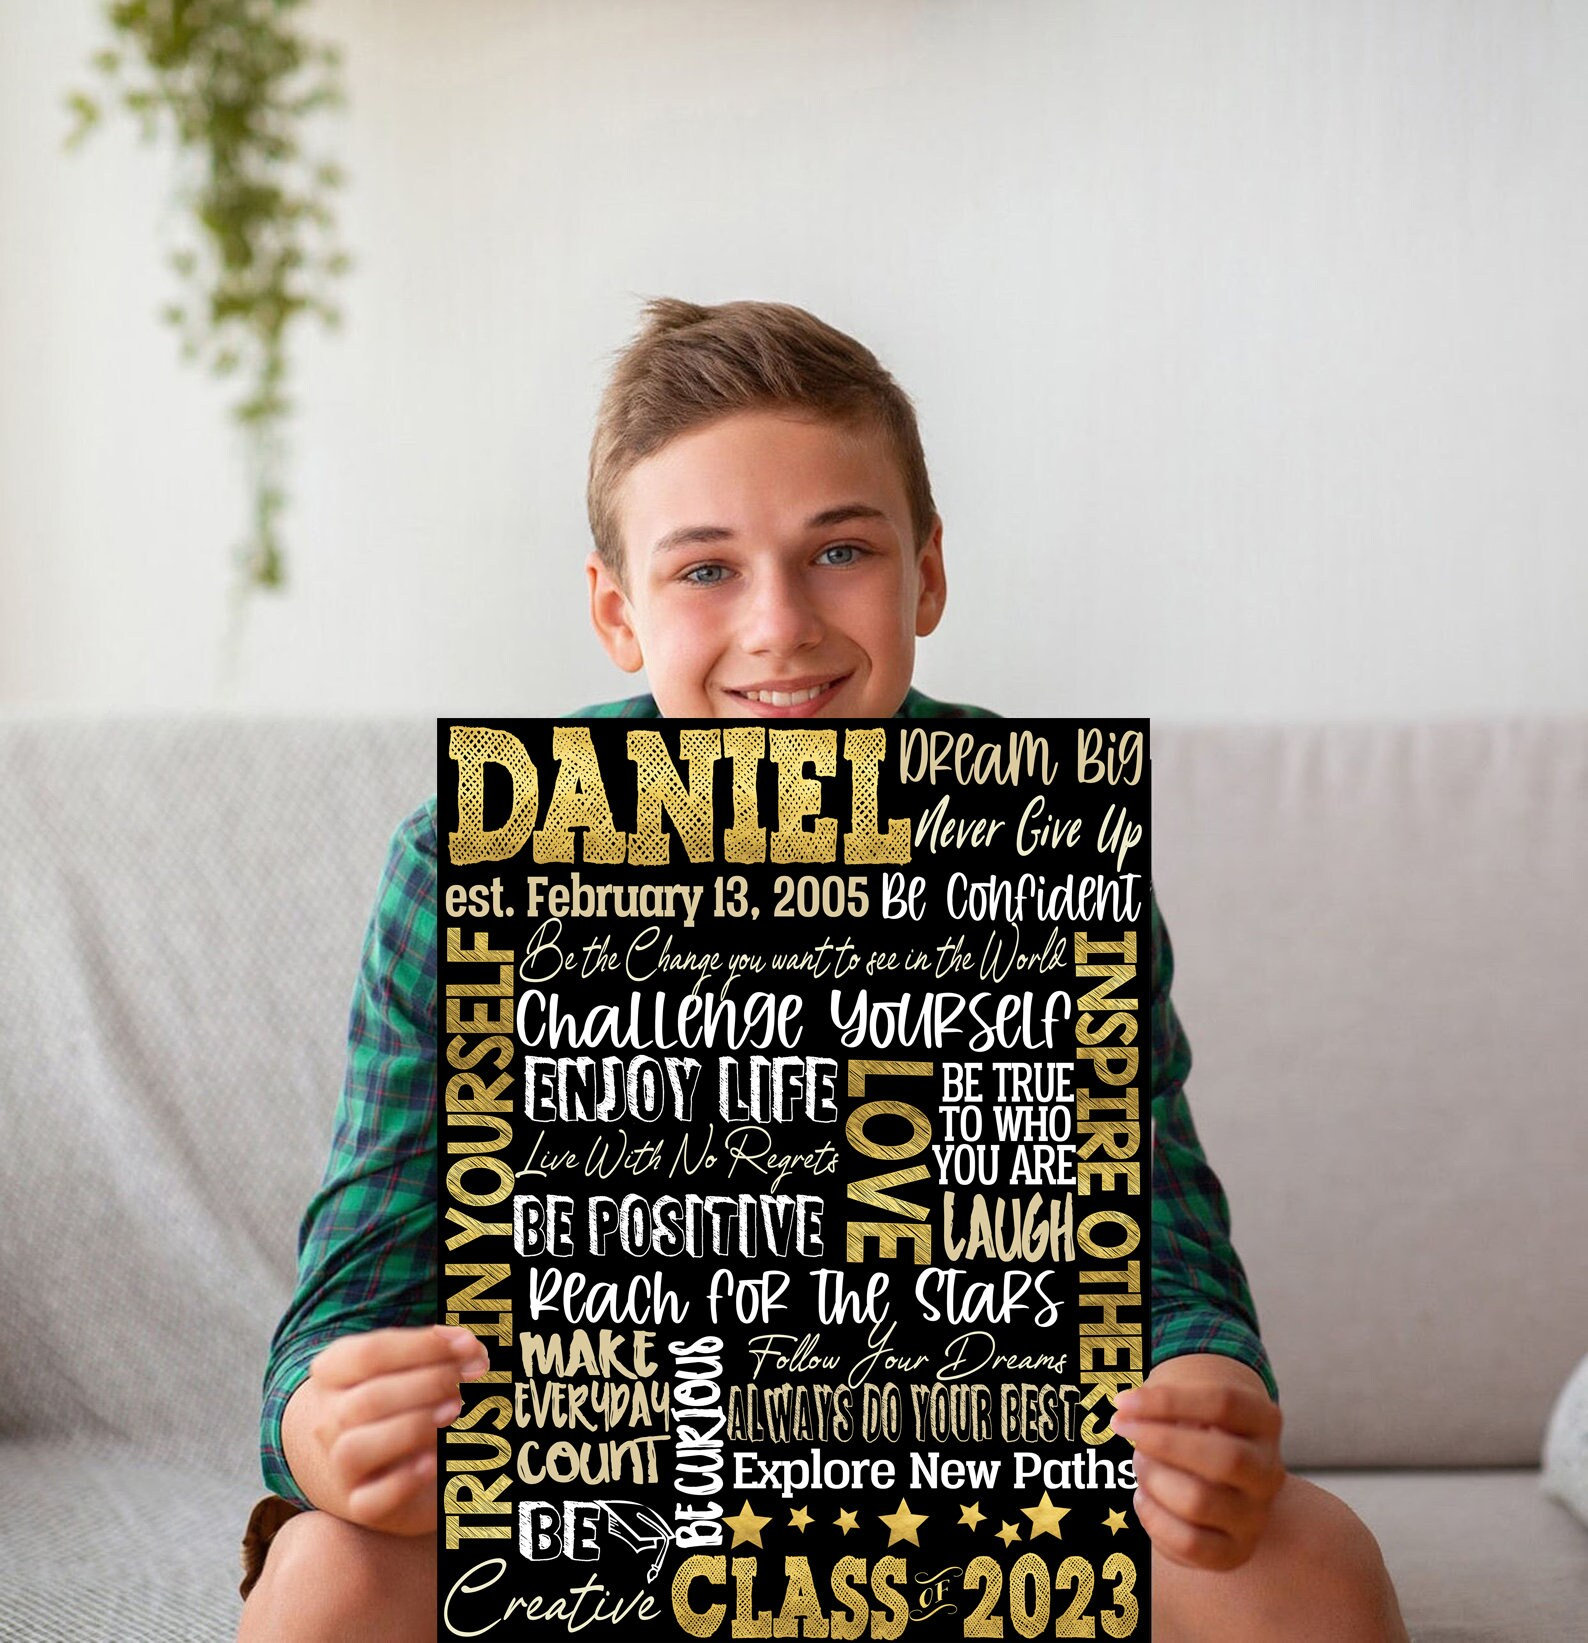 DANIEL
Dream Big
Never Give Up
est. February 13, 2005
Be Confident
TRUST IN YOURSELF
Be the Change you want to see in the World
INSPIRE OTHERS
Challenge Yourself
ENJOY LIFE
LOVE
BE TRUE
TO WHO
YOU ARE
Live With No Regrets
BE POSITIVE
LAUGH
Reach for the Stars
MAKE
EVERYDAY
COUNT
BE CURIOUS
Follow Your Dreams
ALWAYS DO YOUR BEST
Explore New Paths
BE
Creative
CLASS OF 2023